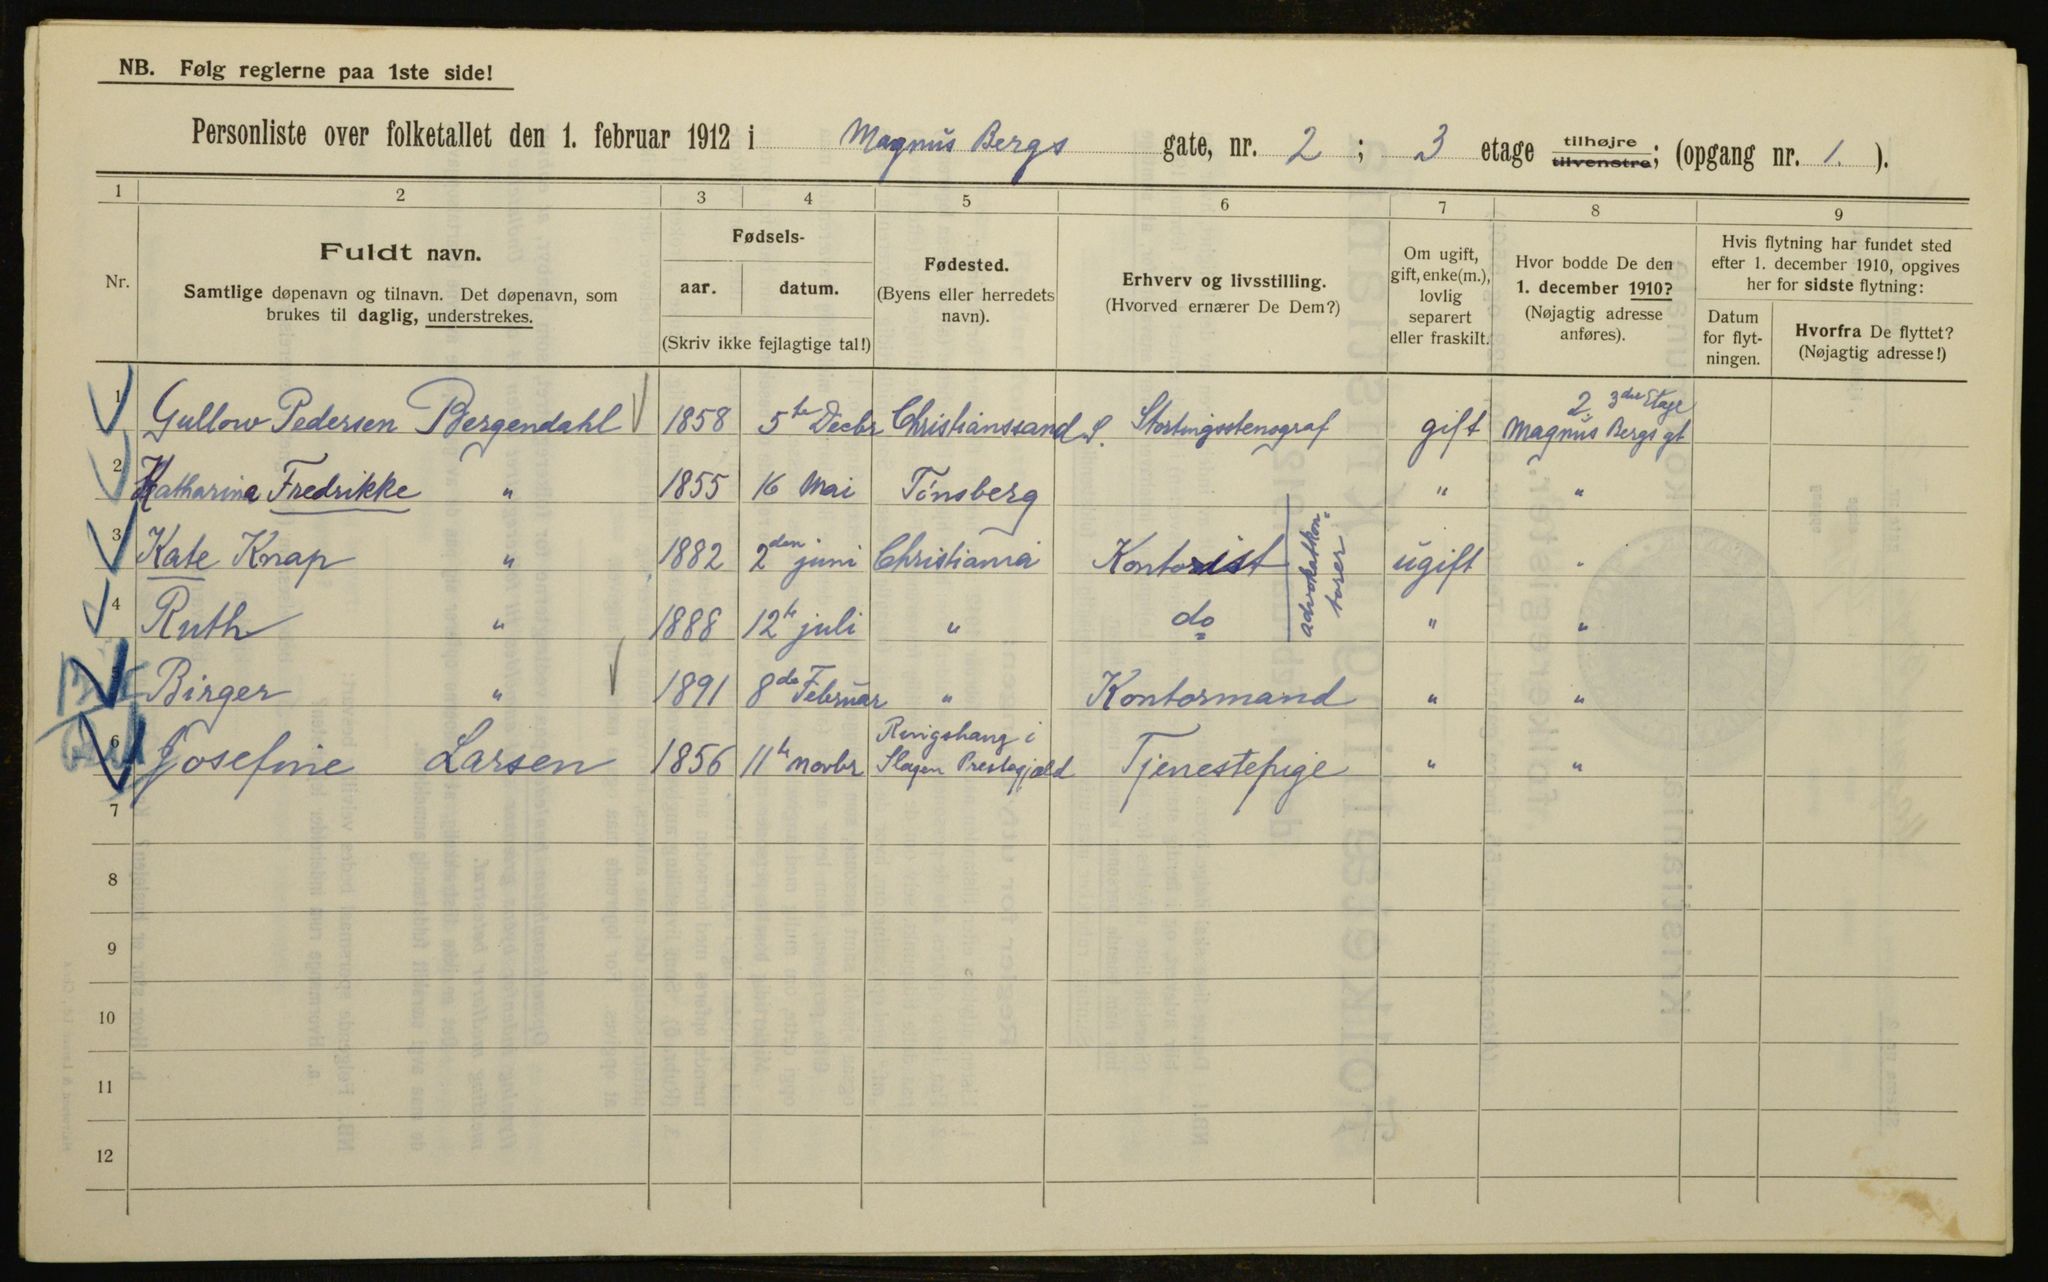 NB. Følg reglerne paa 1ste side!
Personliste over folketallet den 1. februar 1912 i Magnus Bergs gate, nr. 2 ; 3 etage tilhøjre tilvenstre; (opgang nr. 1. ).
1 2 3 4 5 6 7 8 9
Nr.
Fuldt navn.
Samtlige døpenavn og tilnavn. Det døpenavn, som
brukes til daglig, understrekes.
Fødsels-
aar. datum.
(Skriv ikke fejlagtige tal!)
Fødested.
(Byens eller herredets
navn).
Erhverv og livsstilling.
(Hvorved ernærer De Dem?)
Om ugift,
gift, enke(m.),
lovlig
separert
eller fraskilt.
Hvor bodde De den
1. december 1910?
(Nøjagtig adresse
anføres).
Hvis flytning har fundet sted
efter 1. december 1910, opgives
her for sidste flytning:
Datum
for flyt-
ningen.
Hvorfra De flyttet?
(Nøjagtig adresse!)
2. 3die Etage
1 Gullow Pedersen Bergendahl 1858 5te Decbr Christianssand S. Stortingsstenograf gift Magnus Bergs gt
2 Katharina Fredrikke " 1855 16 Mai Tønsberg " "
3 Kate Knap " 1882 2den juni Christiania Kontorist ugift "
advokatkon-
torer
4 Ruth " 1888 12te juli " do " "
5 Birger " 1891 8de Februar " Kontormand " "
6 Josefine Larsen 1856 11te novbr Ringshaug i
Slagen Prestegjæld Tjenestepige " "
7
8
9
10
11
12